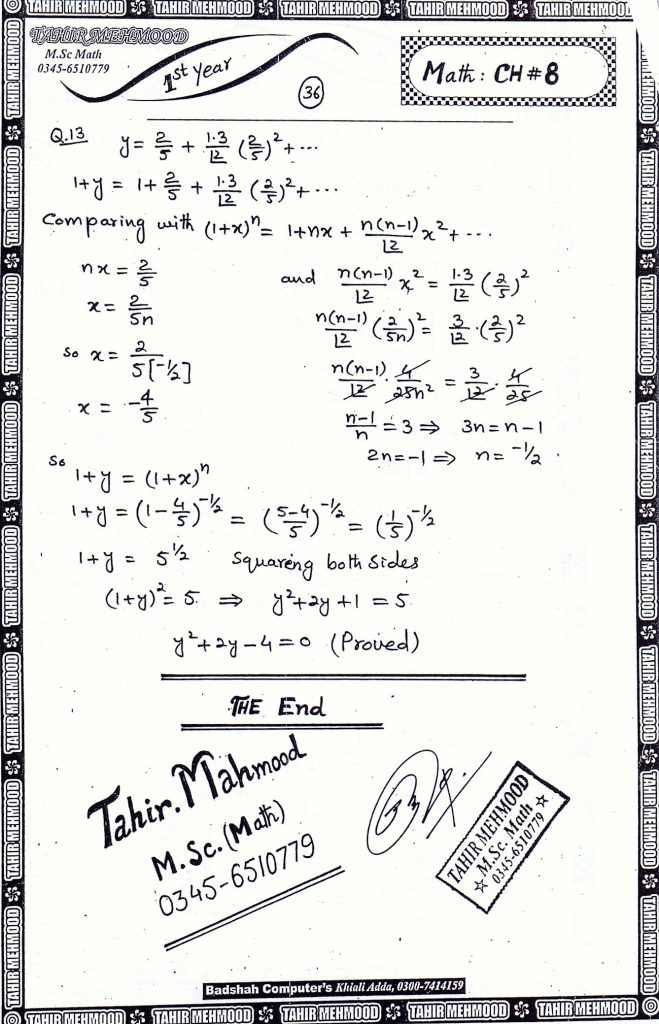 TAHIR MEHMOOD TAHIR MEHMOOD TAHIR MEHMOOD TAHIR MEHMOOD TAHIR MEHMOOD
TAHIR MEHMOOD
M.Sc Math
0345-6510779
1st year
36
Math: CH#8
Q.13 y = 2/5 + 1.3/|2 (2/5)² + ...
1+y = 1+ 2/5 + 1.3/|2 (2/5)² + ...
Comparing with (1+x)ⁿ = 1+nx + n(n-1)/|2 x² + ...
nx = 2/5 and n(n-1)/|2 x² = 1.3/|2 (2/5)²
x = 2/5n n(n-1)/|2 (2/5n)² = 3/|2 · (2/5)²
so x = 2/5[-1/2] n(n-1)/|2 · 4/25n² = 3/|2 · 4/25
x = -4/5 n-1/n = 3 ⇒ 3n = n-1
2n = -1 ⇒ n = -1/2
So
1+y = (1+x)ⁿ
1+y = (1-4/5)^-1/2 = (5-4/5)^-1/2 = (1/5)^-1/2
1+y = 5^1/2 Squareng both sides
(1+y)² = 5 ⇒ y²+2y+1 = 5
y²+2y-4=0 (Proved)
THE End
Tahir. Mahmood
M.Sc. (Math)
0345-6510779
TAHIR MEHMOOD
M.Sc. Math
0345-6510779
Badshah Computer's Khiali Adda, 0300-7414159
TAHIR MEHMOOD TAHIR MEHMOOD TAHIR MEHMOOD TAHIR MEHMOOD TAHIR MEHMOOD